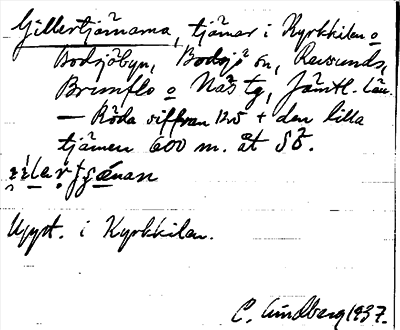 Gillertjärnarna, tjärnar i Kyrkkilen o
Bodsjöbyn, Bodsjö sn, Revsunds,
Brunflo o Näs tg, Jämtl. län.
— Röda siffran 125 + den lilla
tjärnen 600 m. åt SÖ.
Uppt. i Kyrkkilen.
C. Lundberg 1937.